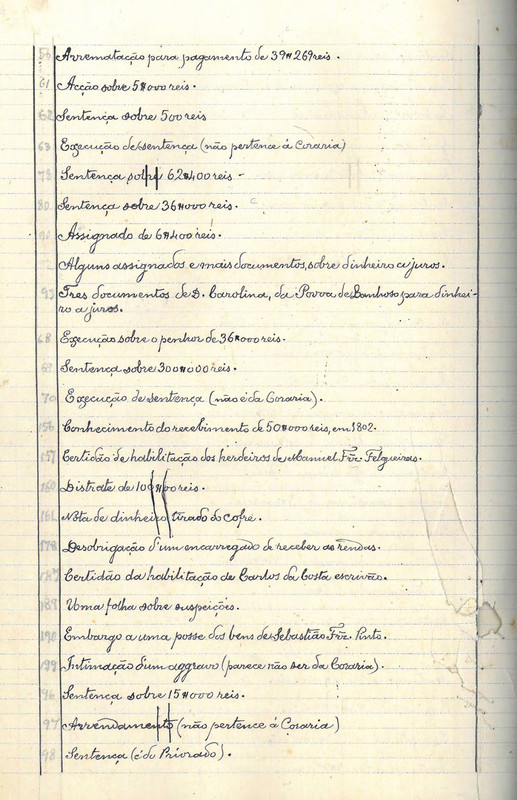 Arrematação para pagamento de 39#269 reis.
61 Acção sobre 5#000 reis.
62 Sentença sobre 500 reis
63 Execução de sentença (não pertence á Coraria)
78 Sentença sobre 62#400 reis -
80 Sentença sobre 36#000 reis.
Assignado de 6#400 reis.
Alguns assignados e mais documentos, sobre dinheiro a juros.
93 Tres documentos de D. Carolina, da Povoa de Lanhoso para dinhei-
ro a juros.
68 Execução sobre o penhor de 36#000 reis.
69 Sentença sobre 300#000 reis.
70 Execução de sentença (não é da Coraria).
156 Conhecimento do recebimento de 50#000 reis, em 1802.
157 Certidão de habilitação dos herdeiros de Manuel Frz. Felgueiras.
160 Distrate de 100#000 reis.
161 Nota de dinheiro tirado do cofre.
178 Desobrigação d'um encarregado de receber as rendas.
187 Certidão da habilitação de Carlos da Costa escrivão.
189 Uma folha sobre suspeições.
190 Embargo a uma posse dos bens de Sebastião Frz. Pinto.
199 Intimação d'um aggravo (parece não ser da Coraria).
96 Sentença sobre 15#000 reis.
97 Arrendamento (não pertence á Coraria)
98 Sentença (é do Priorado).